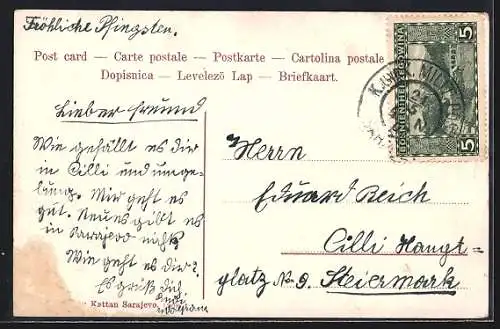 Fröhliche Pfingsten.
Post card — Carte postale — Postkarte — Cartolina postale
Dopisnica — Levelező Lap — Briefkaart.
BOSNIEN HERCEGOWINA
5
5
K. und K. MILIT. POST
Lieber Freund
Wie gefällt es dir
in Cilli und umge-
bung. Mir geht es
gut. Neues gibt es
in Sarajevo nicht
Wie geht es dir?
Es grüß dich
Herrn
Eduard Reich
Cilli Haupt-
platz No 9. Steiermark
Kattan Sarajevo.